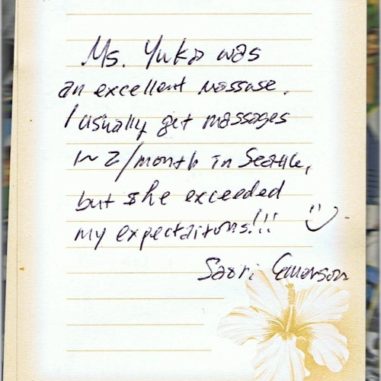 Ms. Yuka was
an excellent massuse.
I usually get massages
1~2/month in Seattle,
but she exceeded
my expectaitons!!!
Saori Emerson